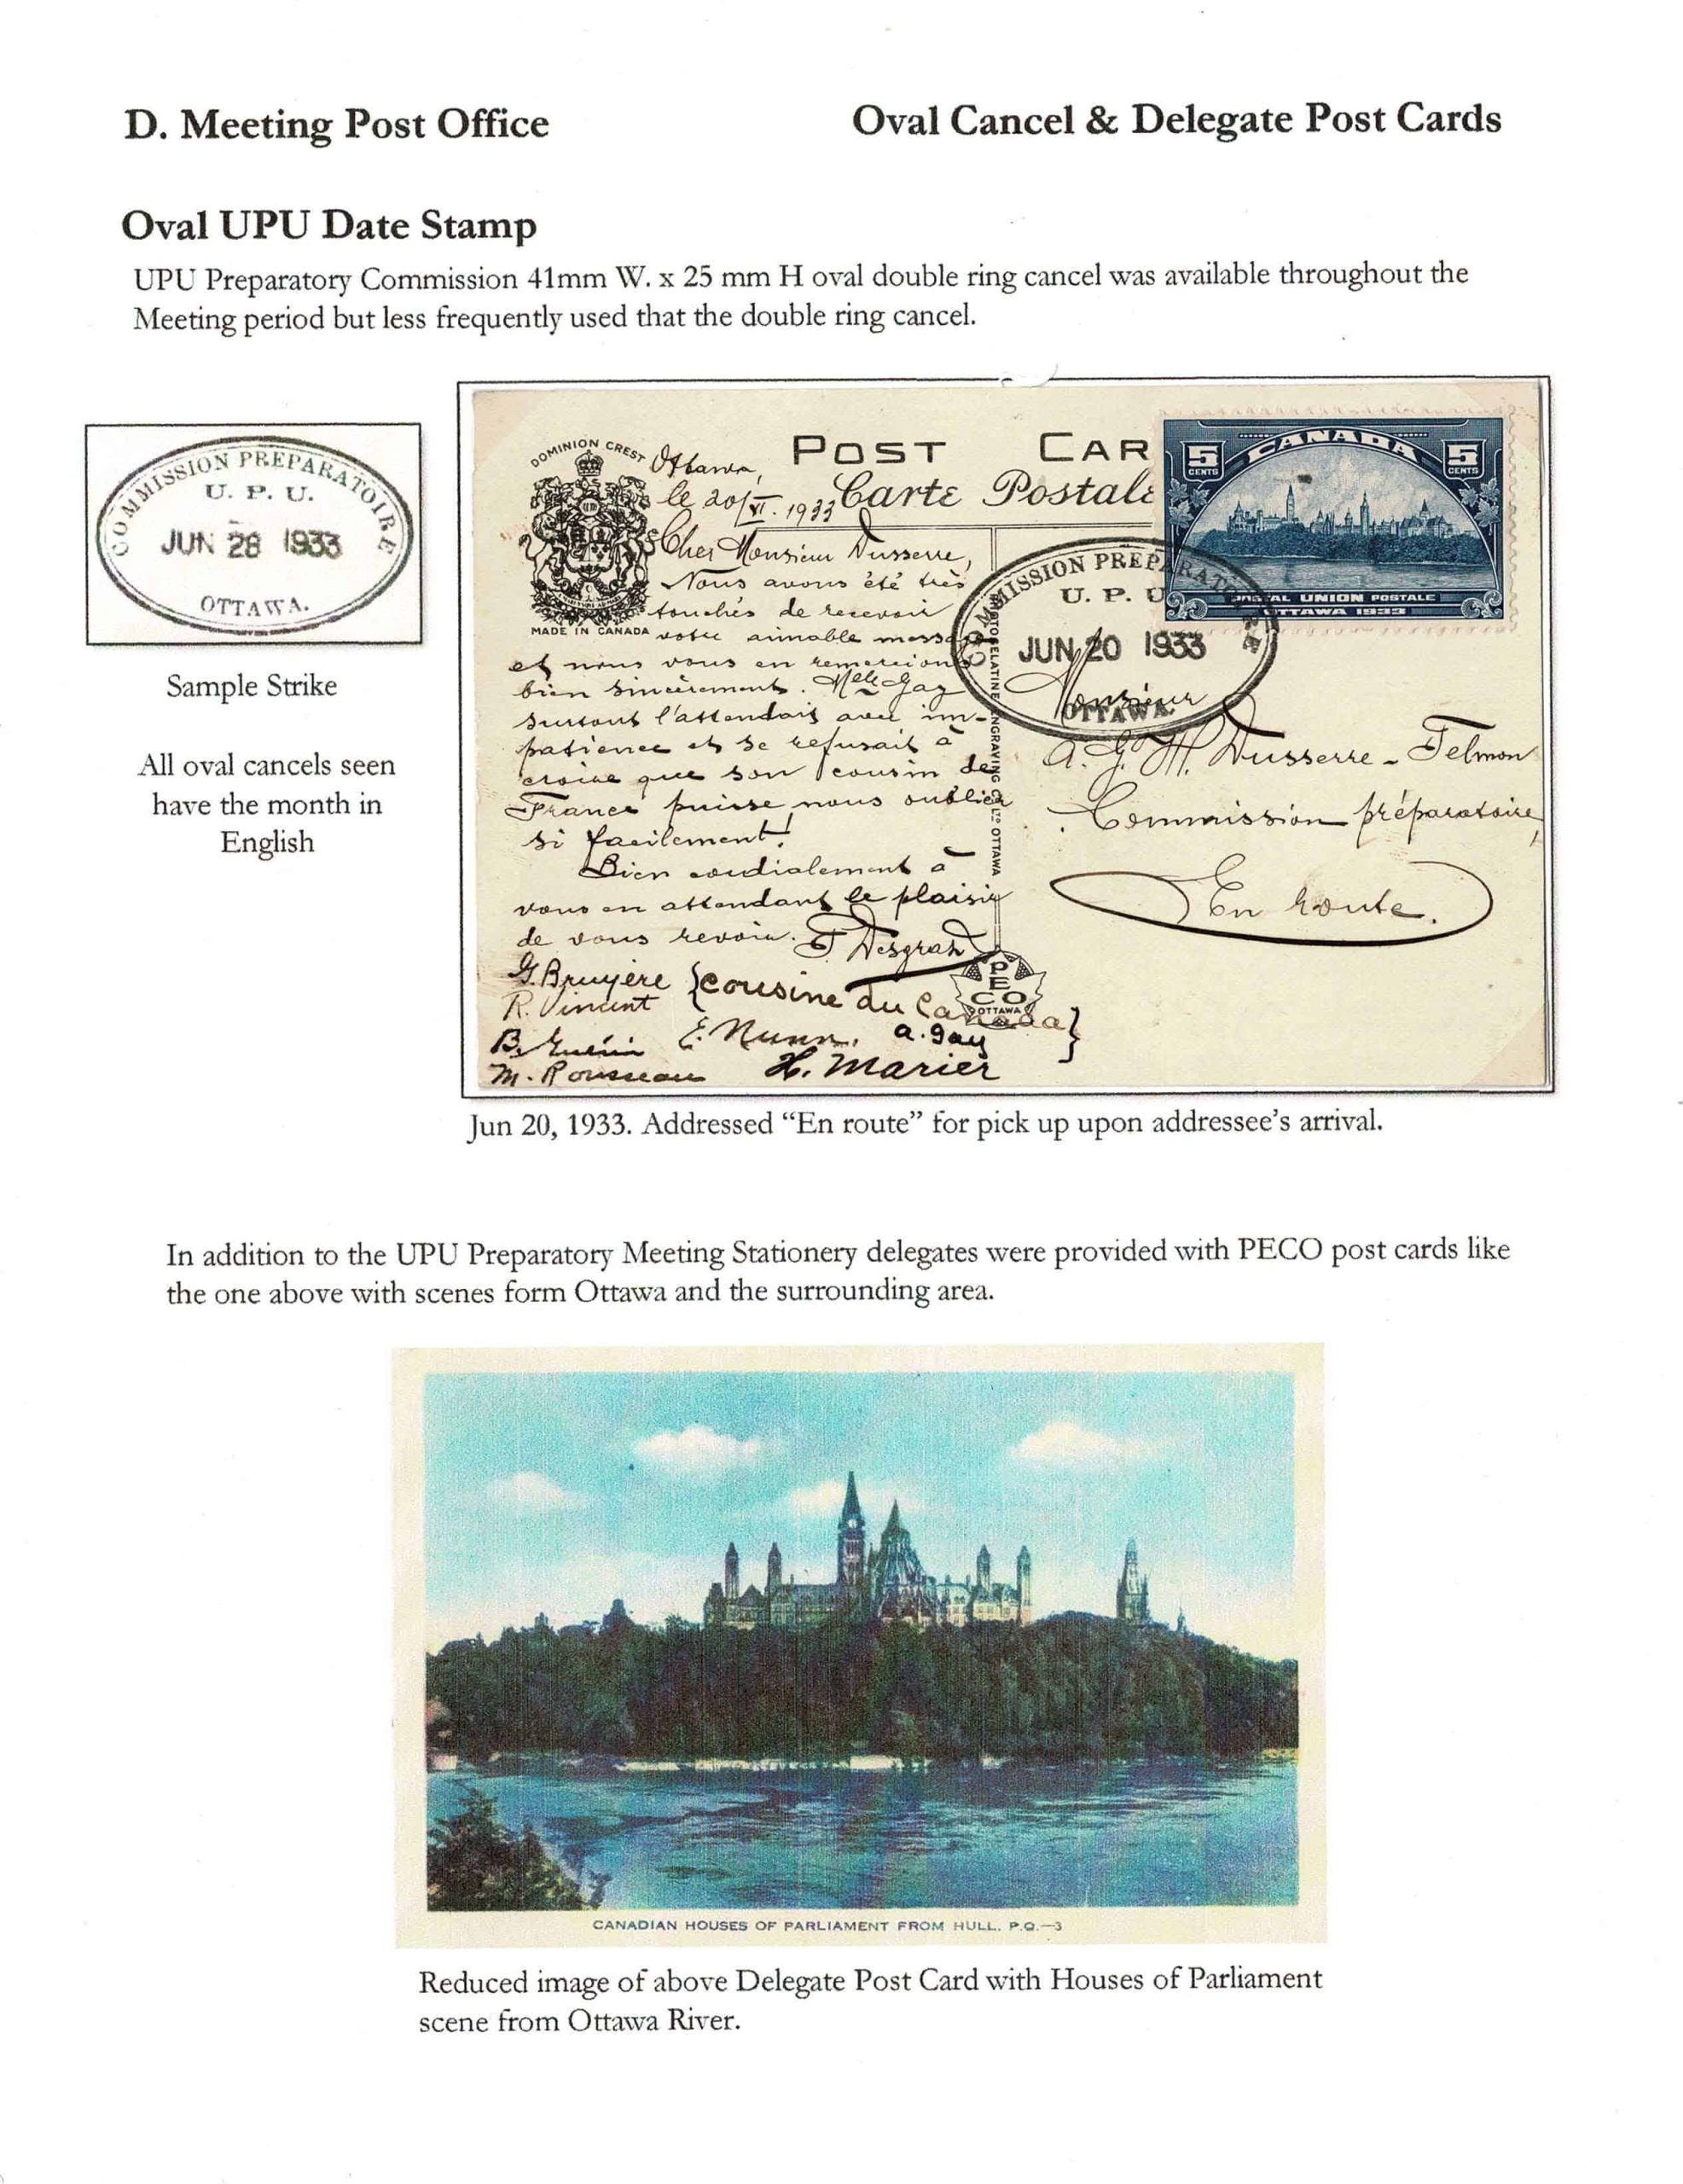 D. Meeting Post Office
Oval Cancel & Delegate Post Cards
Oval UPU Date Stamp
UPU Preparatory Commission 41mm W. x 25 mm H oval double ring cancel was available throughout the
Meeting period but less frequently used that the double ring cancel.
COMMISSION PREPARATOIRE
U. P. U.
JUN 28 1933
OTTAWA.
Sample Strike
All oval cancels seen
have the month in
English
DOMINION CREST
MADE IN CANADA
POST CAR
Carte Postale
5 CENTS CANADA 5 CENTS
POSTAL UNION POSTALE
OTTAWA 1933
COMMISSION PREPARATOIRE
U. P. U
JUN 20 1933
OTTAWA.
Ottawa,
le 20/VI. 1933
Cher Monsieur Dusserre,
Nous avons été très
touchés de recevoir
votre aimable message
et nous vous en remercions
bien sincèrement. Melle Gay
surtout l'attendait avec im-
patience et se refusait à
croire que son cousin de
France puisse nous oublier
si facilement!
Bien cordialement à
vous en attendant le plaisir
de vous revoir.
G. Bruyère {cousine du Canada}
R. Vincent
E. Nunn. a. gay
M. Rousseau H. Marier
PHOTOGELATINE ENGRAVING CO LTD OTTAWA
PECO
OTTAWA
Monsieur
A. G. M. Dusserre - Telmon
Commission préparatoire,
En route.
Jun 20, 1933. Addressed “En route” for pick up upon addressee’s arrival.
In addition to the UPU Preparatory Meeting Stationery delegates were provided with PECO post cards like
the one above with scenes form Ottawa and the surrounding area.
CANADIAN HOUSES OF PARLIAMENT FROM HULL. P.Q.—3
Reduced image of above Delegate Post Card with Houses of Parliament
scene from Ottawa River.